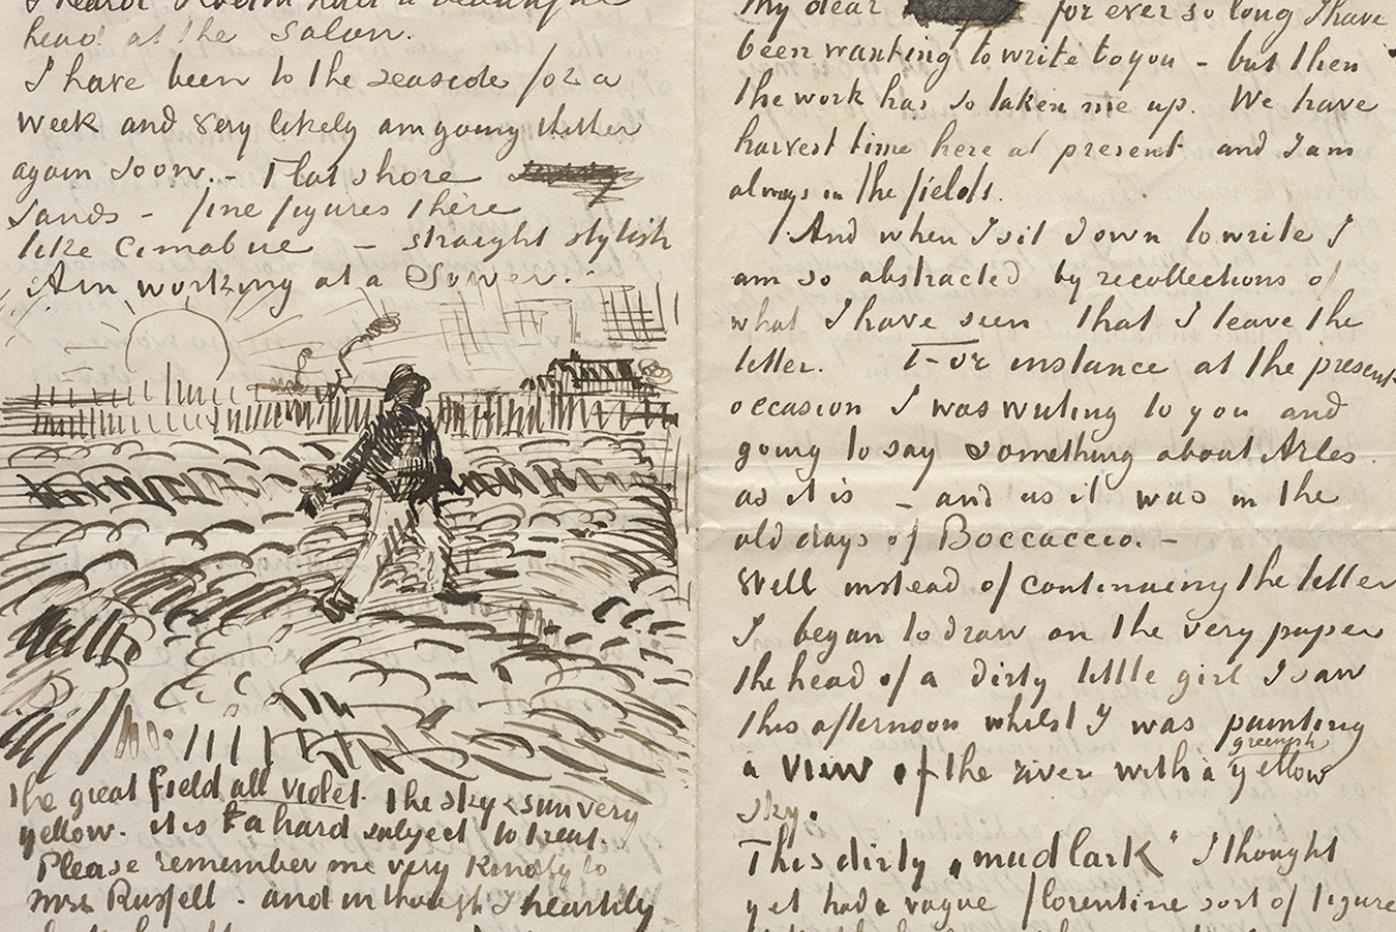 I heard Rodin had a beautiful
head at the Salon.
I have been to the seaside for a
week and very likely am going thither
again soon. - Flat shore
sands - fine figures there
like Cimabue - straight stylish
Am working at a Sower.
the great field all violet. the sky & sun very
yellow. it is a hard subject to treat.
Please remember me very kindly to
Mrs Russell - and in thought I heartily
My dear for ever so long I have
been wanting to write to you - but then
the work has so taken me up. We have
harvest time here at present and I am
always in the fields.
And when I sit down to write I
am so abstracted by recollections of
what I have seen that I leave the
letter. For instance at the present
occasion I was writing to you and
going to say something about Arles
as it is - and as it was in the
old days of Boccaccio. -
Well instead of continuing the letter
I began to draw on the very paper
the head of a dirty little girl I saw
this afternoon whilst I was painting
a view of the river with a greenish yellow
sky.
This dirty „mudlark" I thought
yet had a vague florentine sort of figure